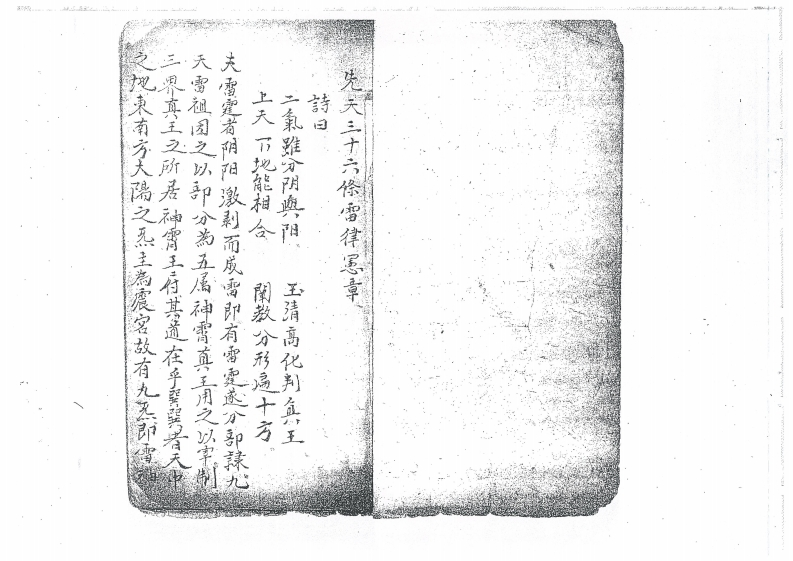 先天三十六條雷律憲章
詩曰
二氣雖分阴與阳 玉清高化判真王
上天下地能相合 闡教分形遍十方
夫雷霆者阴阳激剥而成雷即有雷霆遂分部隷九
天雷祖因之以部分為五属神霄真王用之以宰制
三界真王之所居神霄王府其道在乎巽巽者天中
之地東南方大陽之炁主為震宮故有九炁即雷